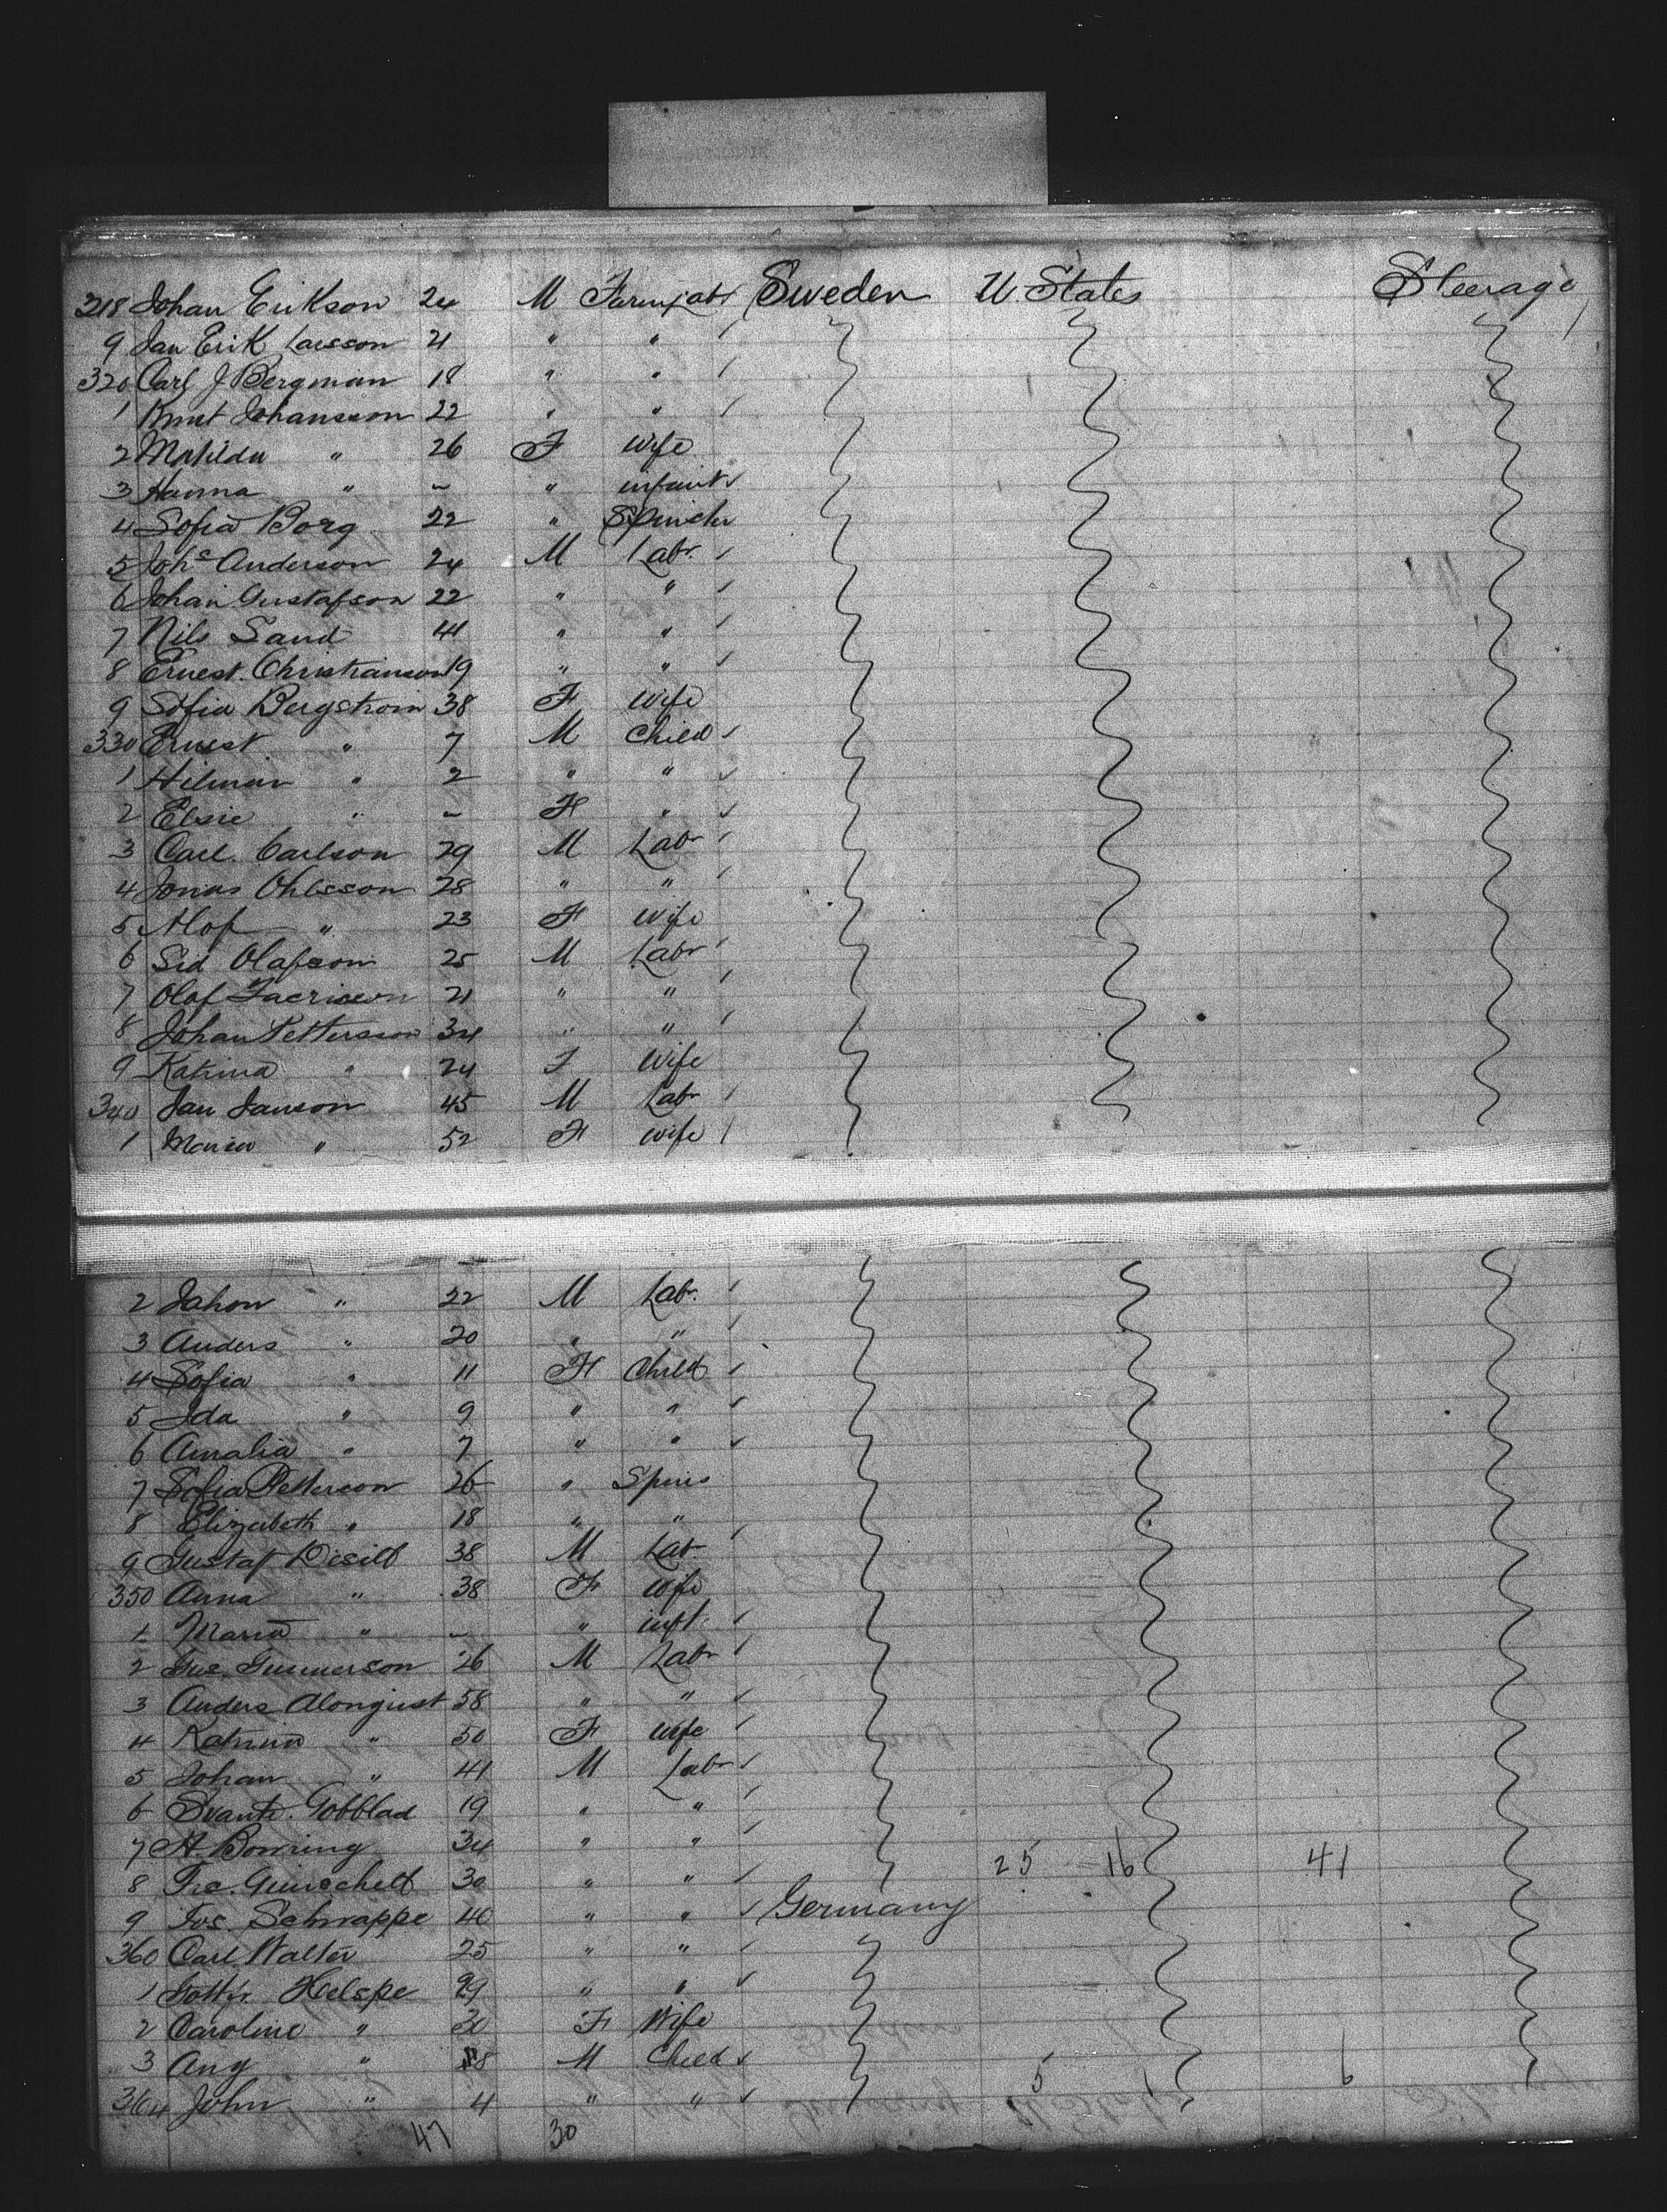 318 Johan Erikson 24 M Farm Labr Sweden U. States Steerage
9 Jan Erik Larsson 21 " "
320 Carl J Bergman 18 " "
1 Knut Johansson 22 " "
2 Matilda " 26 F Wife
3 Hanna " - " infant
4 Sofia Borg 22 " Spinster
5 Johs Anderson 24 M Labr.
6 Johan Gustafson 22 " "
7 Nils Sand 41 " "
8 Ernest. Christianson 19 " "
9 Sofia Bergstrom 38 F Wife
330 Ernest " 7 M Child
1 Hilmar " 2 " "
2 Elsie " - F "
3 Carl. Carlson 29 M Labr
4 Jonas Ohlsson 28 " "
5 Olof " 23 F Wife
6 Sid Olafson 25 M Labr
7 Olof 21 " "
8 Johan Pettersson 34 " "
9 Katrina " 24 F Wife
340 Jan Janson 45 M Labr
1 Maria " 52 F Wife
2 Jahon " 22 M Labr.
3 Anders " 20 " "
4 Sofia " 11 F Child
5 Ida " 9 " "
6 Amalia " 7 " "
7 Sofia Petterson 26 " Spins
8 Elizabeth " 18 " "
9 Gustaf 38 M Labr
350 Anna " 38 F Wife
1 Maria " - " inft.
2 Gus. Gunnerson 26 M Labr
3 Anders Alongust 58 " "
4 Katrina " 50 F Wife
5 Johan " 41 M Labr
6 Svante. Gobblad 19 " "
7 A. Bowring 34 " " 25 16 41
8 Frc. 30 " "
9 Jos. Schnappe 40 " " Germany
360 Carl Walter 25 " "
1 Gottfr. Helspe 29 " "
2 Caroline " 30 F Wife
3 Aug " 8 M Child 5 1 6
364 John " 4 " "
47 30